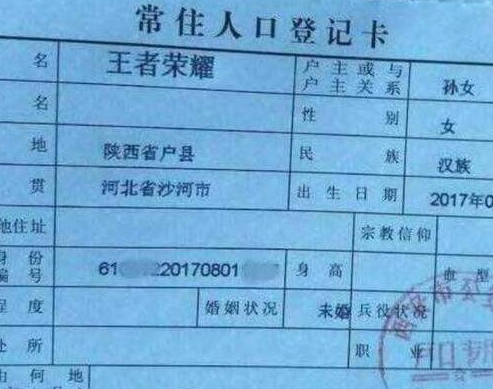 常住人口登记卡
名 王者荣耀 户主或与户主关系 孙女
名 性别 女
地 陕西省户县 民族 汉族
贯 河北省沙河市 出生日期 2017年0
他住址 宗教信仰
身份编号 61 220170801 身高 血型
程度 婚姻状况 未婚 兵役状况
处所 职业
由何地